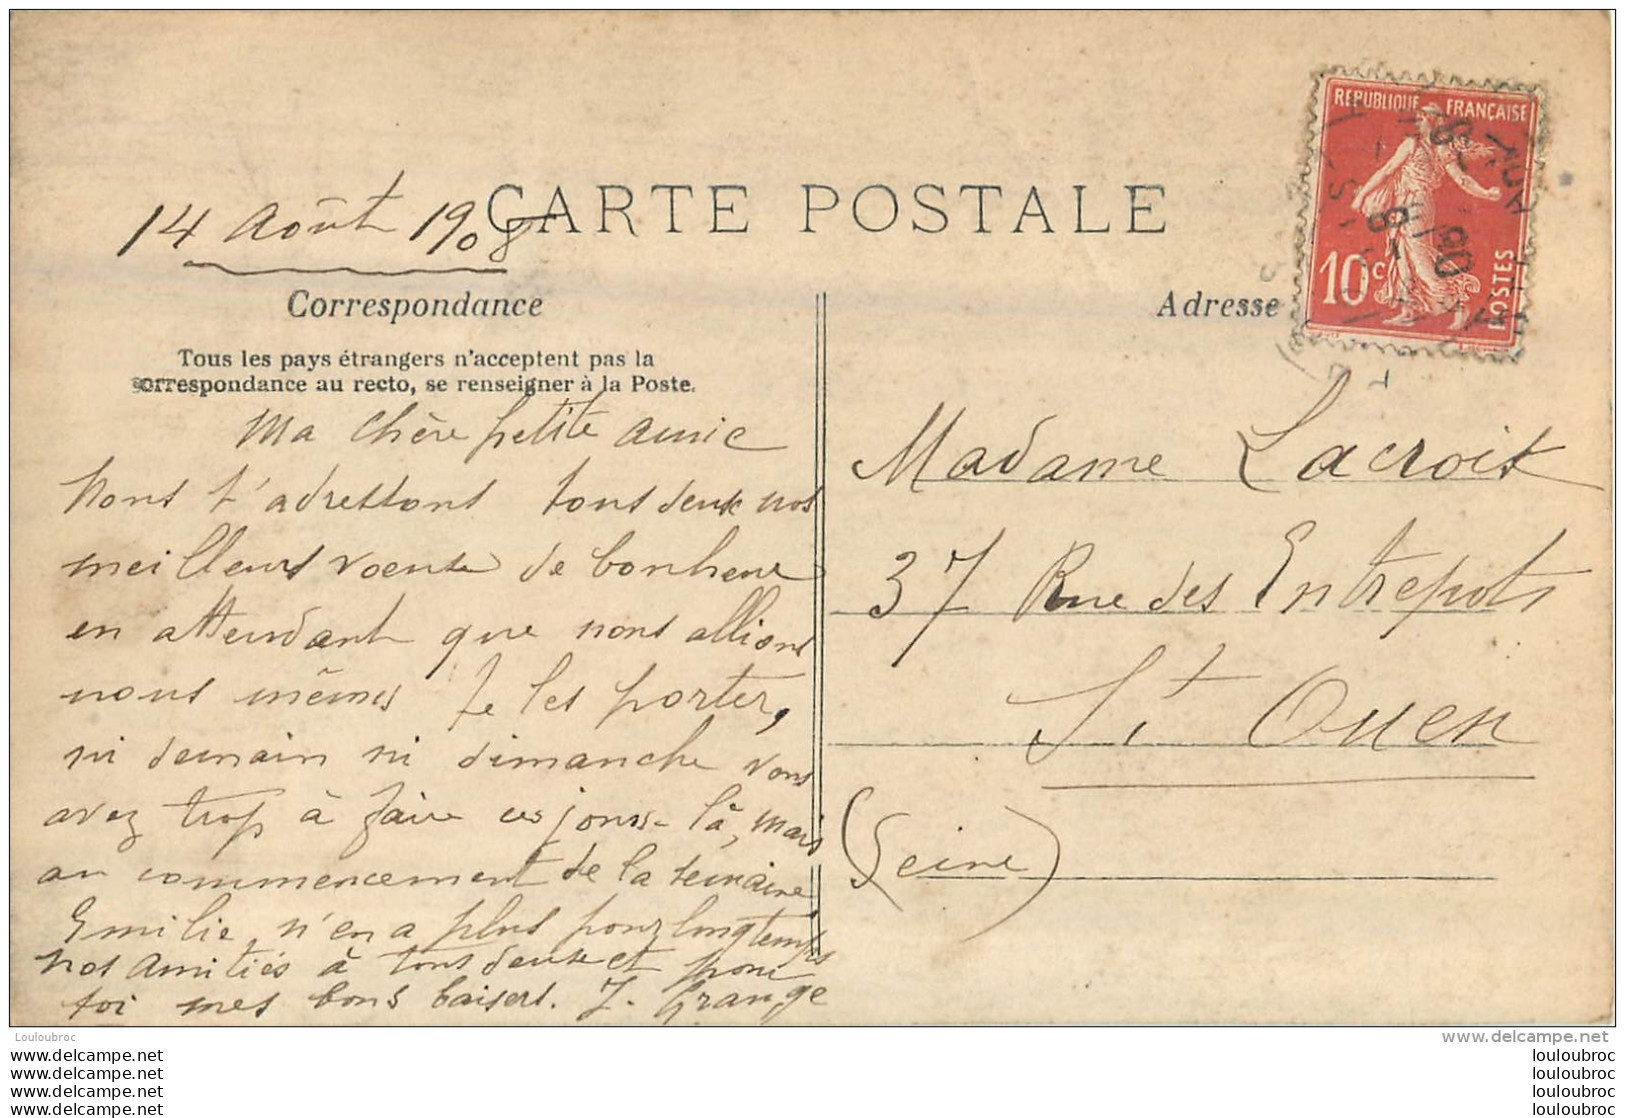 CARTE POSTALE
14 Août 1908
Correspondance
Tous les pays étrangers n'acceptent pas la
correspondance au recto, se renseigner à la Poste.
Ma chère petite amie
Nous t'adressons tous deux nos
meilleurs voeux de bonheur
en attendant que nous allions
nous mêmes te les porter,
ni demain ni dimanche vous
avez trop à faire ces jours-là, mais
au commencement de la semaine
Emilie n'en a plus pour longtemps
nos amitiés à tous deux et pour
toi mes bons baisers. J. Grange
REPUBLIQUE FRANÇAISE
10c
POSTES
Adresse
Madame Lacroix
37 Rue des Entrepots
St Ouen
(Seine)
Louloubroc
www.delcampe.net
www.delcampe.net
www.delcampe.net
www.delcampe.net
www.delcampe.net
louloubroc
louloubroc
louloubroc
louloubroc